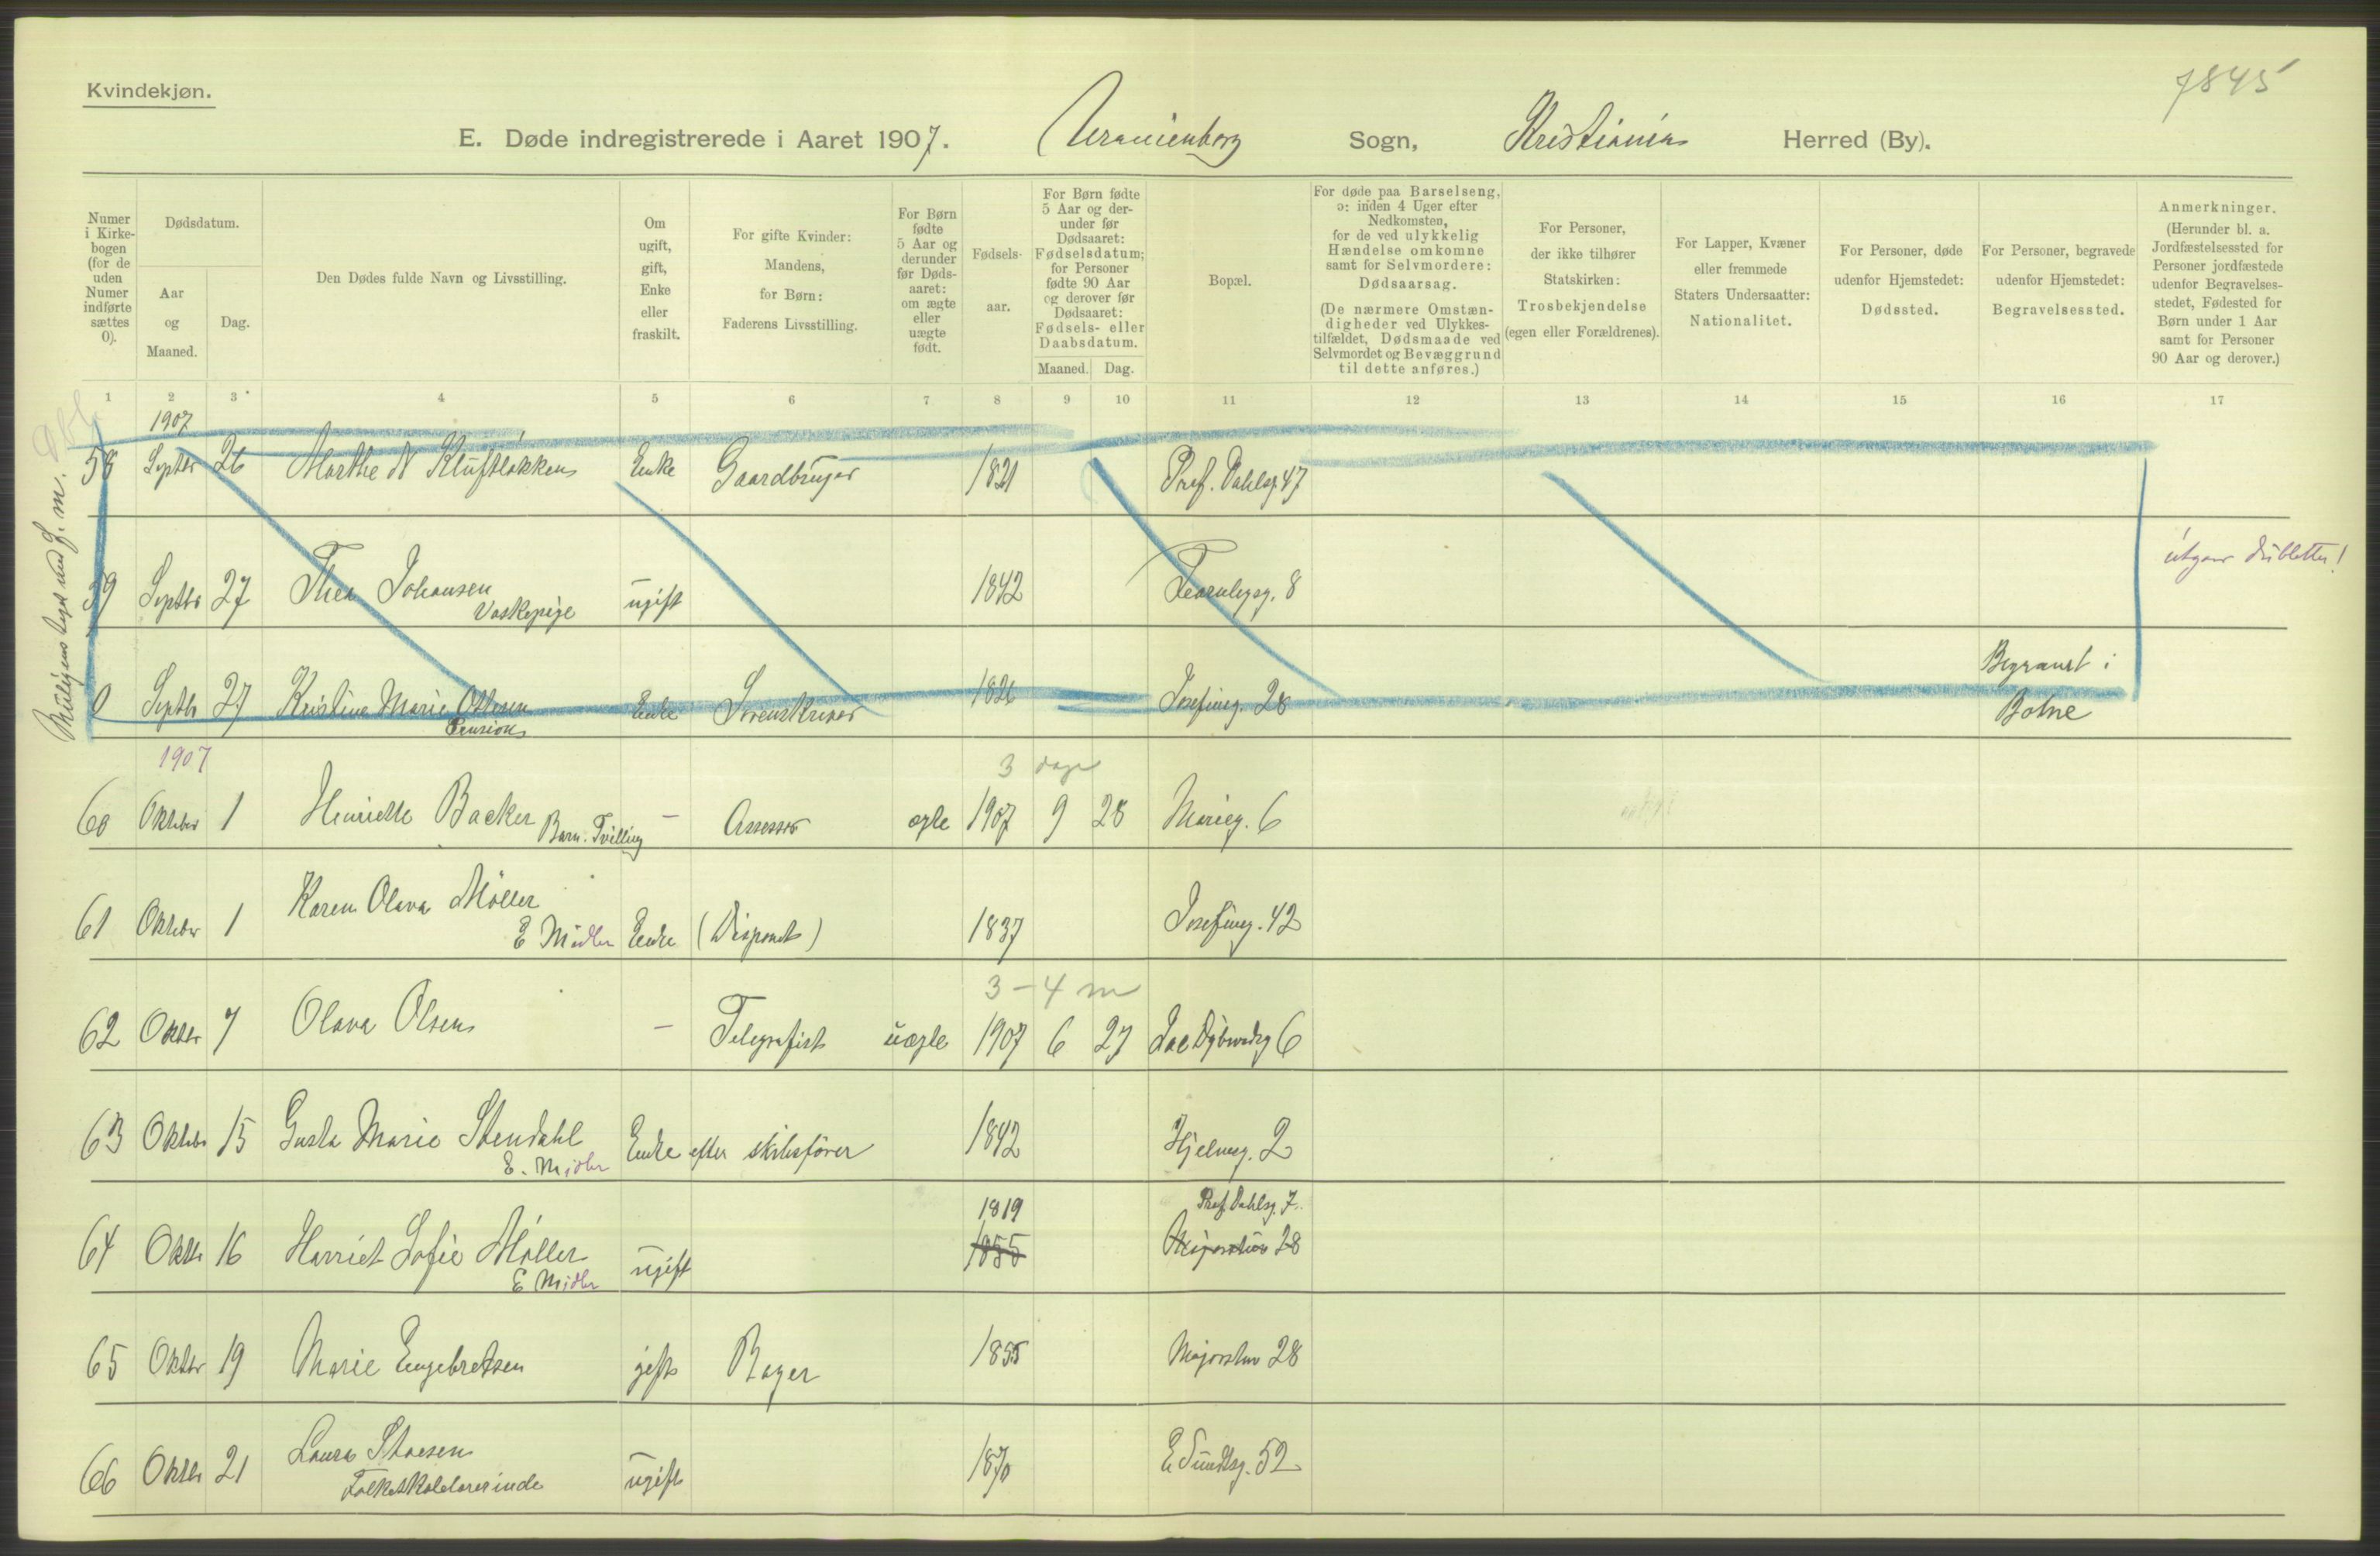 Kvindekjøn.
7845
E. Døde indregistrerede i Aaret 1907. Uranienborg Sogn, Kristiania Herred (By).
Numer i Kirke-bogen (for de uden Numer indførte sættes 0).
Dødsdatum.
Aar og Maaned.
Dag.
Den Dødes fulde Navn og Livsstilling.
Om ugift, gift, Enke eller fraskilt.
For gifte Kvinder: Mandens, for Børn: Faderens Livsstilling.
For Børn fødte 5 Aar og derunder før Døds-aaret: om ægte eller uægte født.
Fødsels-aar.
For Børn fødte 5 Aar og der-under før Dødsaaret: Fødselsdatum; for Personer fødte 90 Aar og derover før Dødsaaret: Fødsels- eller Daabsdatum.
Maaned. Dag.
Bopæl.
For døde paa Barselseng, ɔ: inden 4 Uger efter Nedkomsten, for de ved ulykkelig Hændelse omkomne samt for Selvmordere: Dødsaarsag.
(De nærmere Omstæn-digheder ved Ulykkes-tilfældet, Dødsmaade ved Selvmordet og Bevæggrund til dette anføres.)
For Personer, der ikke tilhører Statskirken: Trosbekjendelse (egen eller Forældrenes).
For Lapper, Kvæner eller fremmede Staters Undersaatter: Nationalitet.
For Personer, døde udenfor Hjemstedet: Dødssted.
For Personer, begravede udenfor Hjemstedet: Begravelsessted.
Anmerkninger. (Herunder bl. a. Jordfæstelsessted for Personer jordfæstede udenfor Begravelses-stedet, Fødested for Børn under 1 Aar samt for Personer 90 Aar og derover.)
1 2 3 4 5 6 7 8 9 10 11 12 13 14 15 16 17
1907
58 Septbr 26 Marthe N Kluftløkken Enke Gaardbruger 1821 Prof. Dahlsg. 47
utgaar dubletter!
59 Septbr 27 Thea Johansen ugift 1842 Fearnleysg. 8
Vaskepige
Begravet i
0 Septbr 27 Kristine Marie Ottesen Enke Sorenskriver 1826 Josefineg. 28 Botne
Pension
1907
3 dage
60 Oktober 1 Henriette Backer Barn. Tvilling — Assessor ægte 1907 9 28 Marieg. 6
61 Oktober 1 Karen Olava Møller
E Midler Enke (Disponent) 1837 Josefineg. 42
3 – 4 m
62 Oktbr 7 Olava Olsen — Telegrafist uægte 1907 6 27 6
63 Oktober 15 Gusta Marie Stendahl Enke efter skibsfører 1842 Hjelmsg. 2
E. Midler
1819 Prof. Dahlsg. 7
64 Oktbr 16 Harriet Sofie Møller ugift 1855 Majorstuv 28
E Midler
65 Oktbr 19 Marie Engebretsen gift Bager 1855 Majorstuv 28
66 Oktbr 21 Laura Staesen ugift 1870 E Sundtsg. 52
Folkeskolelærerinde